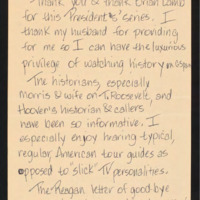 Thank you & thank Brian Lamb
for this "Presidents" series. I
thank my husband for providing
for me so I can have the luxurious
privilege of watching history on CSpan.
The historians, especially
morris & wife on T. Roosevelt, and
Hoover's historian & callers
have been so informative. I
especially enjoy hearing typical,
regular American tour guides as
opposed to slick TV personalities.
The Reagan letter of good-bye